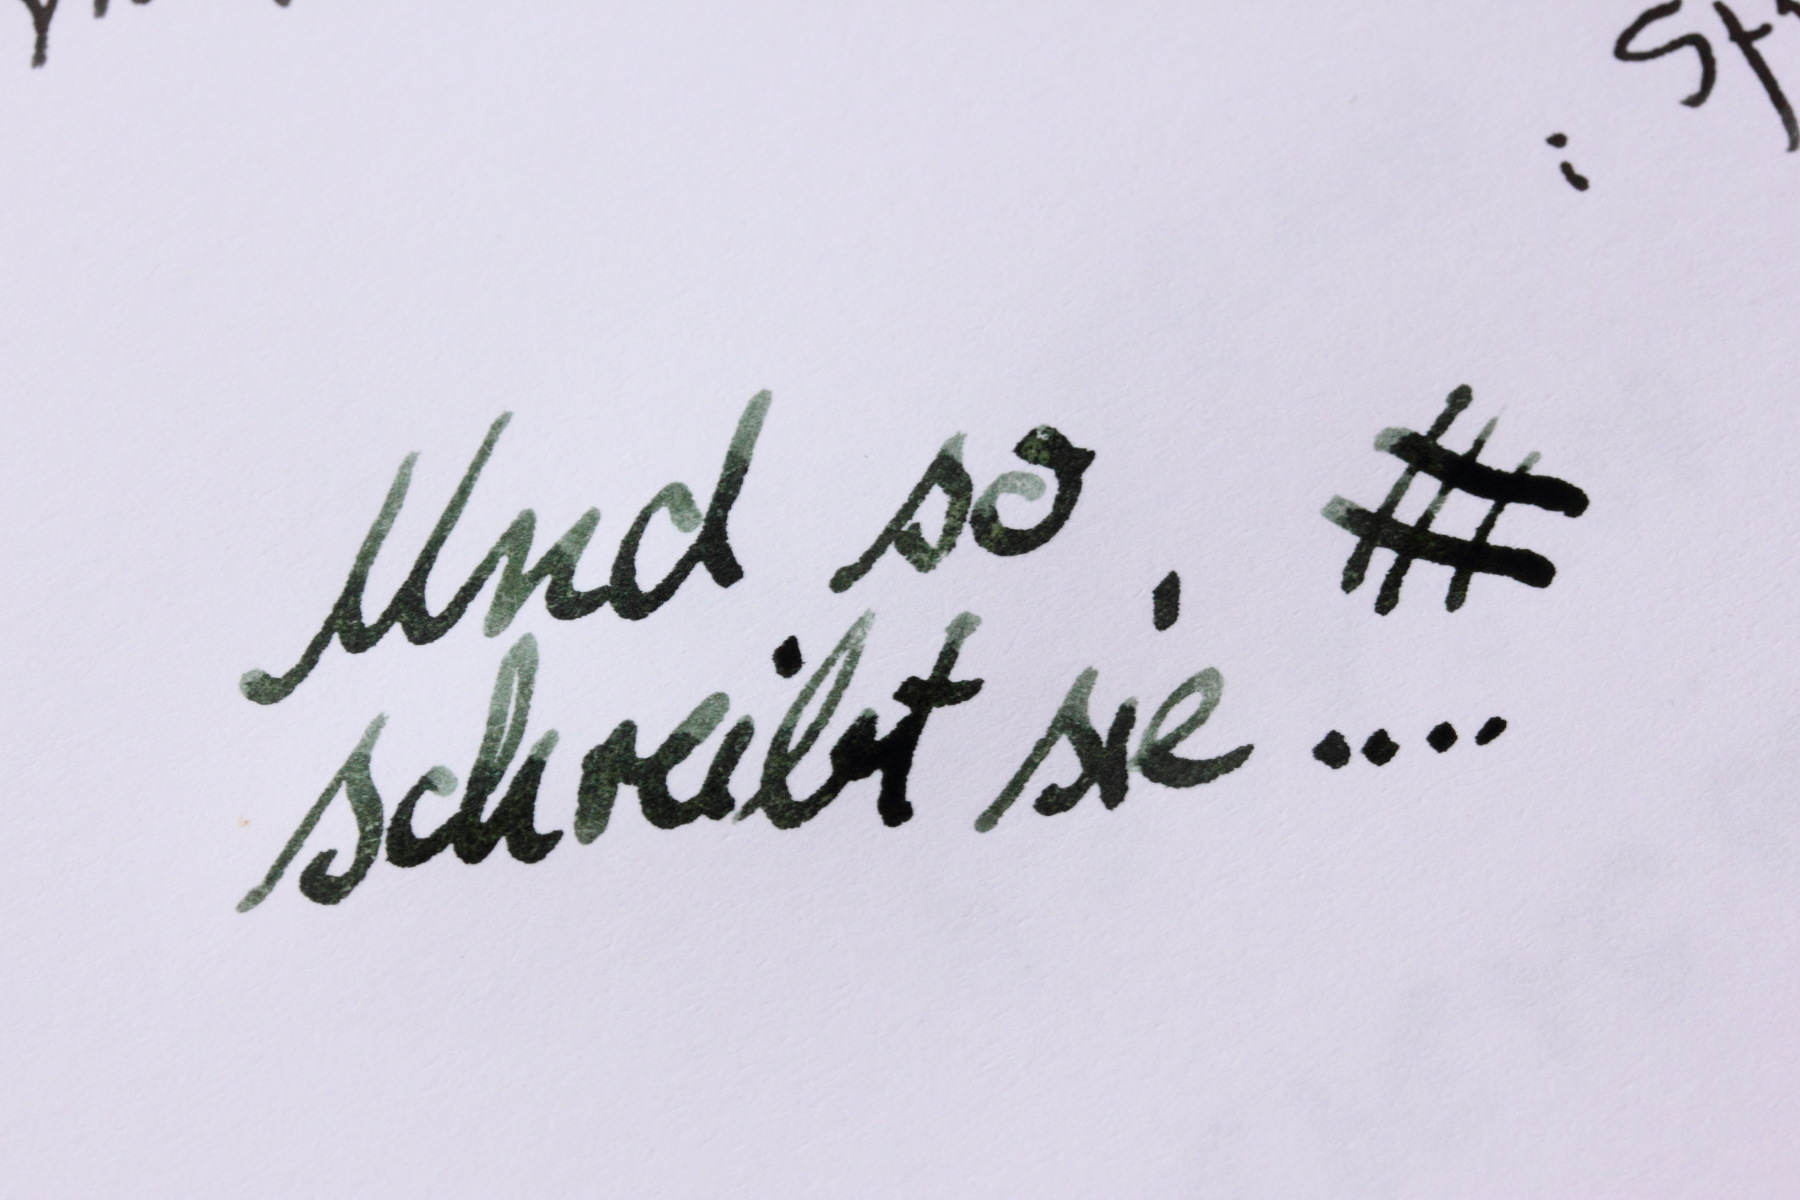 Und so
schreibt sie ....